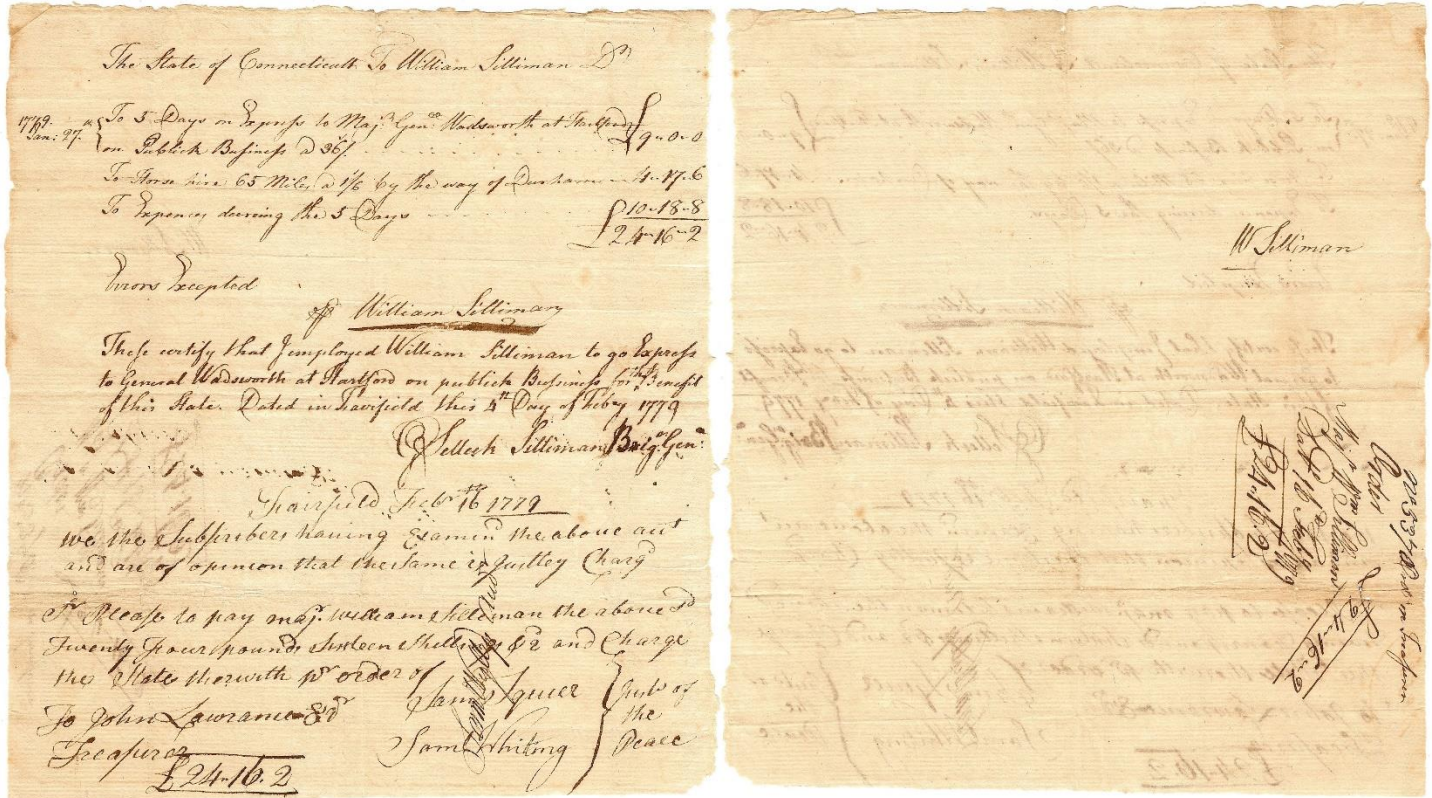 The State of Connecticutt To William Silliman Dr
1779. Jan: 27.
To 5 Days on Express to Maj.r Gen.ll Wadsworth at Hartford
on Publick Business a 36/. £9-0-0
To Horse hire 65 Miles a 1/6 by the way of Durham - 4-17-6
To Expences dureing the 5 Days 10-18-8
£24-16-2
Errors Excepted
William Silliman
These certify that I employed William Silliman to go Express
to General Wadsworth at Hartford on publick Bussiness for the Benefit
of this State. Dated in Fairfield this 4th Day of Feby 1779
G Selleck Silliman Brig.r Gen.l
Fairfield Febr 16th 1779
we the Subscribers having Examind the above acct
and are of opinion that the same is justley Chargd
Sr Please to pay majr. william Silliman the above sd
Twenty four pounds sixteen shillings & 2d and Charge
the State therwith pr order of
To John Lawrance Esqr
Treasurer
£24-16-2
Saml Squier
Saml Whiting
Justs of
the
Peace
W Silliman
No 537
Order on Treasurer
Order
Maj. Wm Silliman
£24-16-2
Dat.d 16 Feby 1779
£24.16.2